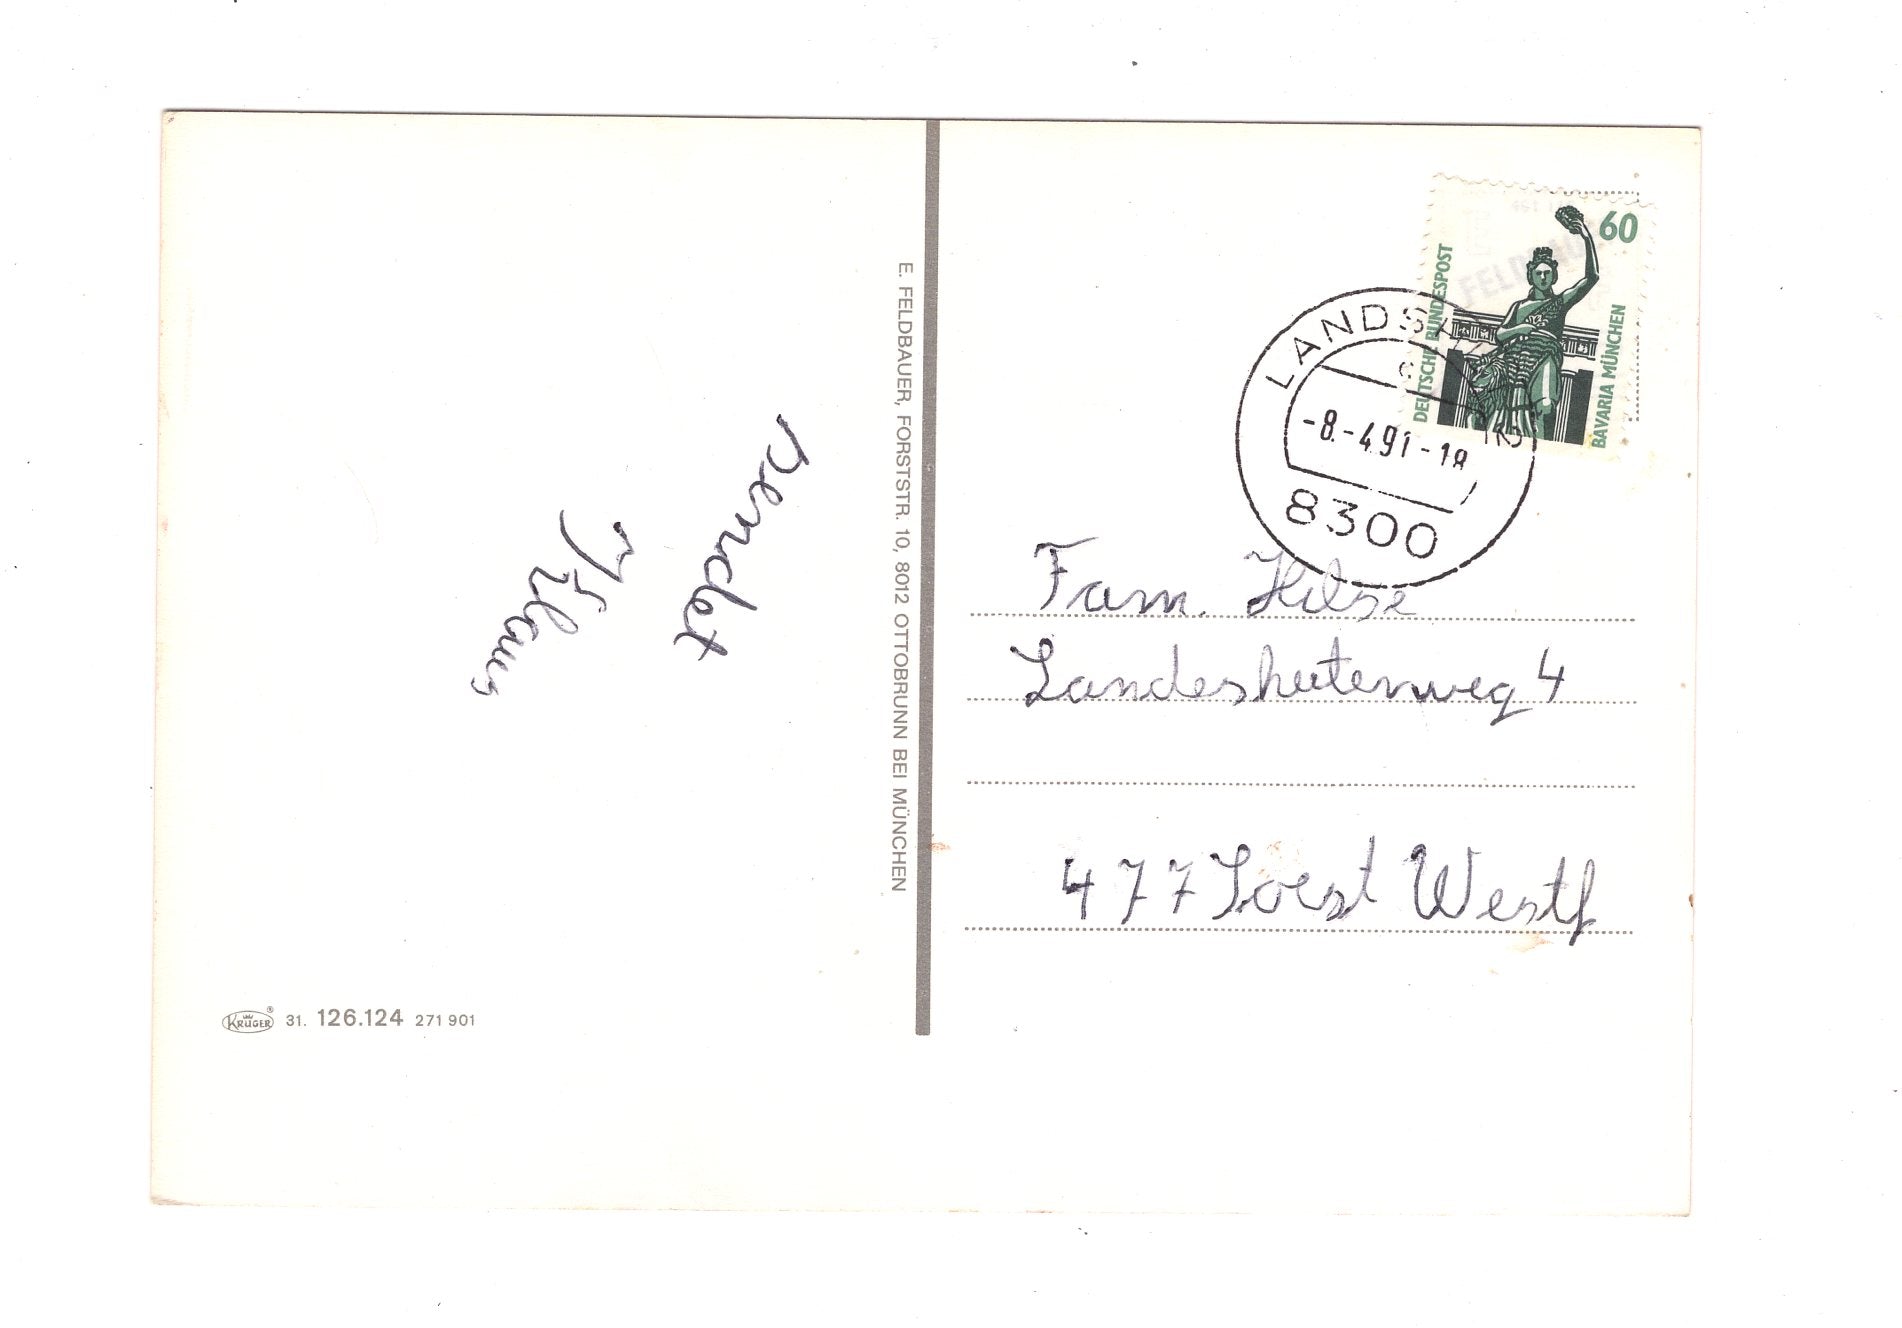 sendet
Klaus
E. FELDBAUER, FORSTSTR. 10, 8012 OTTOBRUNN BEI MÜNCHEN
KRÜGER® 31. 126.124 271 901
60
DEUTSCHE BUNDESPOST
BAVARIA MÜNCHEN
LANDSHUT
-8.-4.91-18
8300
Fam. Hilse
Landeshuterweg 4
477 Soest Westf